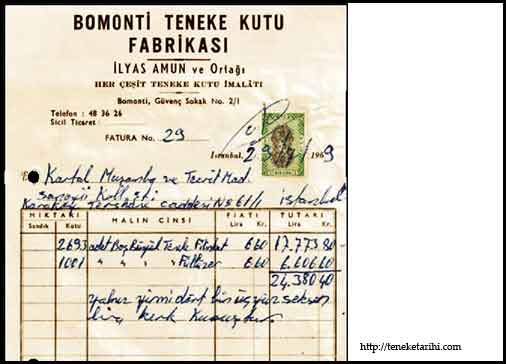 BOMONTİ TENEKE KUTU
FABRİKASI
İLYAS AMUN ve Ortağı
HER ÇEŞİT TENEKE KUTU İMALÂTI
Bomonti, Güvenç Sokak No. 2/1
Telefon : 48 36 26
Sicil Ticaret :
FATURA No. 29
İstanbul, 29 1969
Kartal ve Tecrit Mad.
Karaköy Tersane caddesi No 61/1 istanbul
MİKTARI MALIN CİNSİ FİATI TUTARI
Sandık Kutu Lira Kr. Lira Kr.
2693 adet Boş Büyük Teneke 6 60 17.773 80
1001 " " " 6 60 6.606 60
24.380 40
yalnız yirmidört bin üçyüz seksen
lira kırk kuruştur.
http://teneketarihi.com